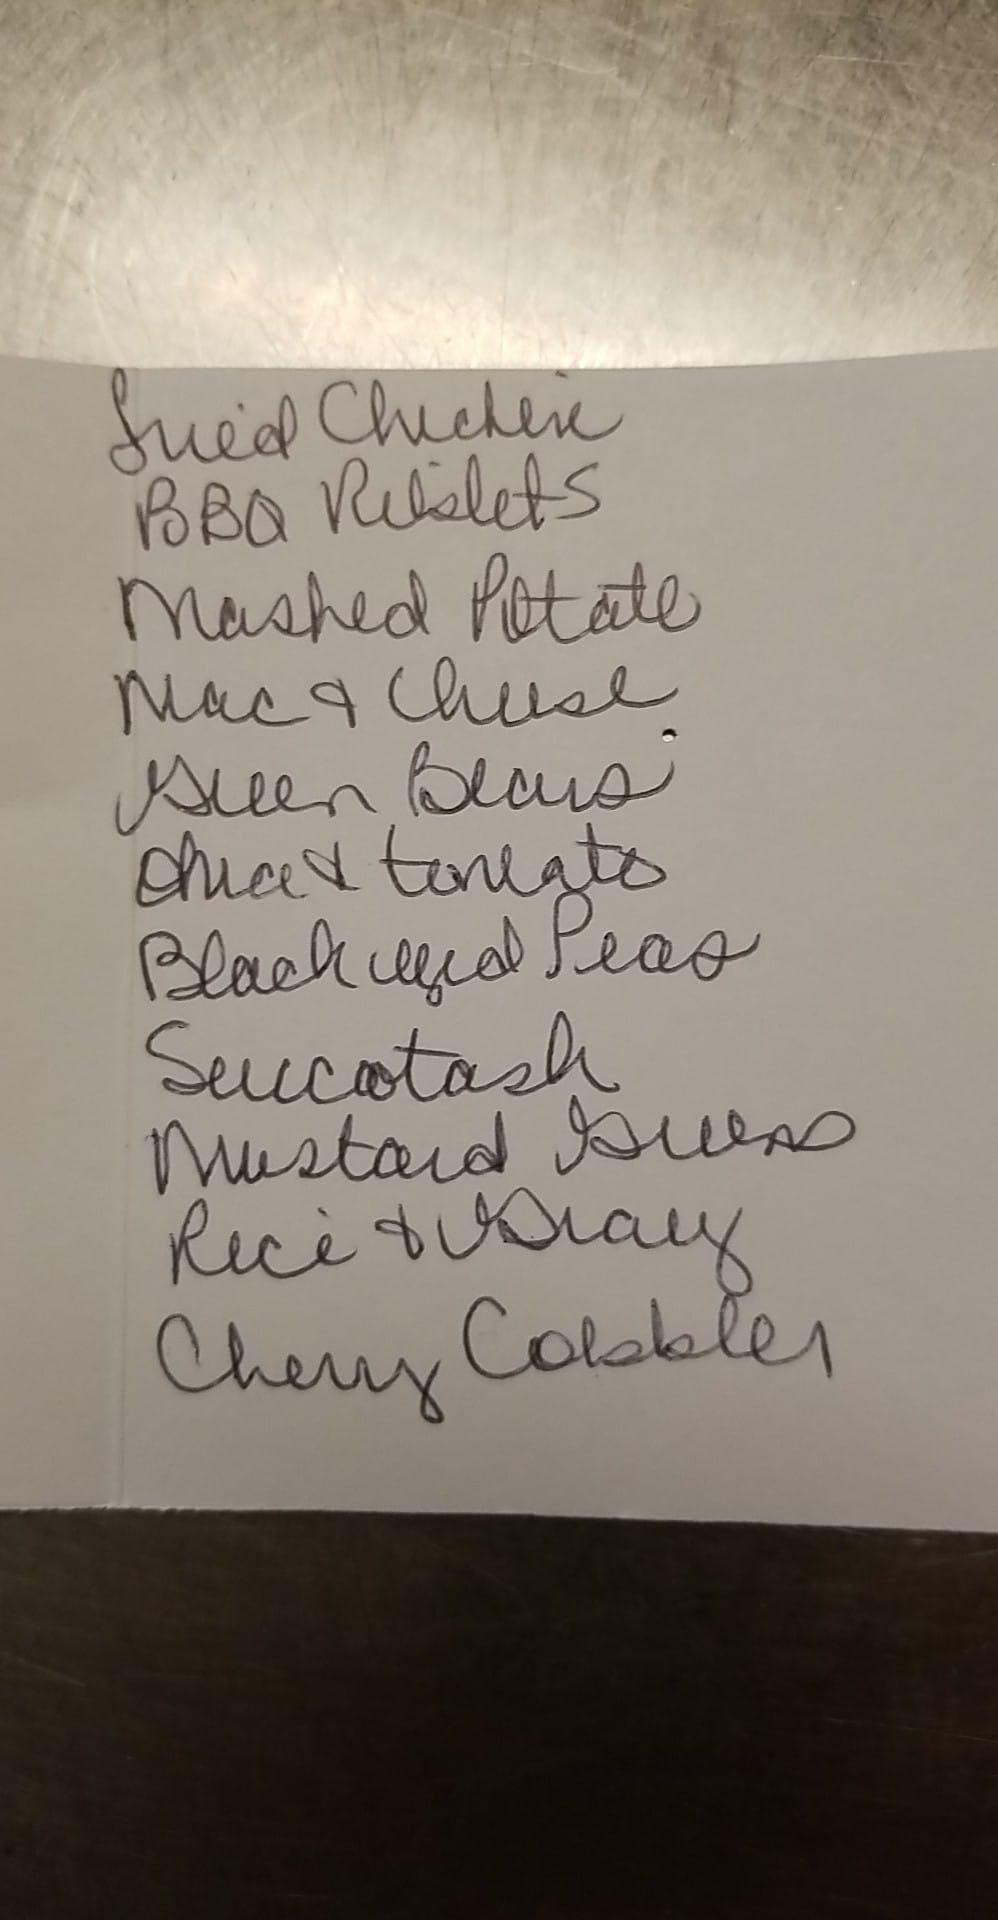 Fried Chicken
BBQ Riblets
Mashed Potato
Mac & Cheese
Green Beans
Okra & tomato
Blackeyed Peas
Succotash
Mustard Greens
Rice & Gravy
Cherry Cobbler